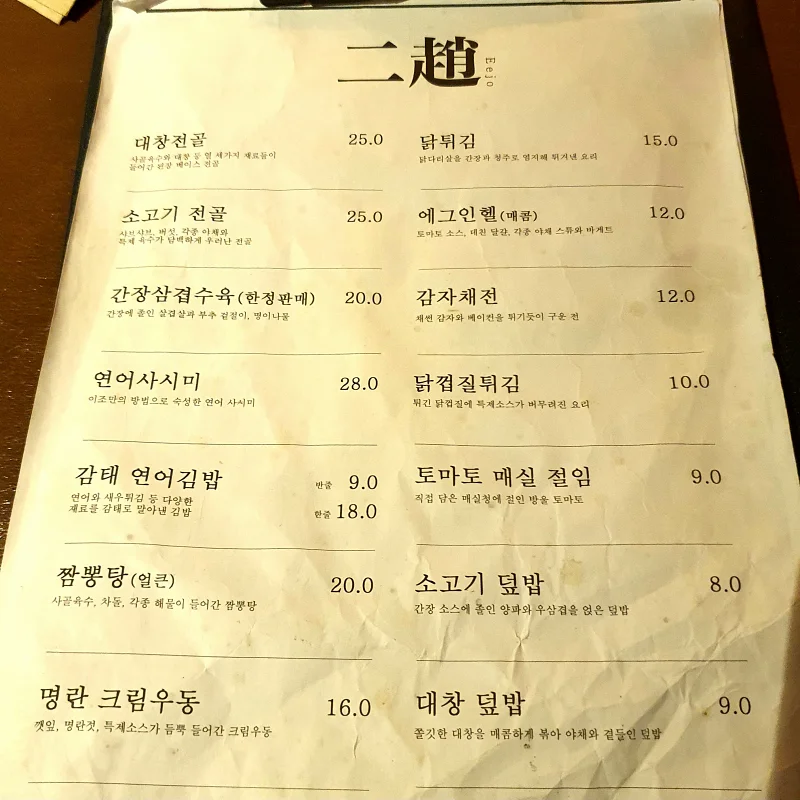 二趙
Eejo
대창전골 25.0
사골육수와 대창 등 열 세가지 재료들이
들어간 된장 베이스 전골
소고기 전골 25.0
샤브샤브, 버섯, 각종 야채와
특제 육수가 담백하게 우러난 전골
간장삼겹수육(한정판매) 20.0
간장에 졸인 삼겹살과 부추 겉절이, 명이나물
연어사시미 28.0
이조만의 방법으로 숙성한 연어 사시미
감태 연어김밥 반줄 9.0
연어와 새우튀김 등 다양한
재료를 감태로 말아낸 김밥 한줄 18.0
짬뽕탕(얼큰) 20.0
사골육수, 차돌, 각종 해물이 들어간 짬뽕탕
명란 크림우동 16.0
깻잎, 명란젓, 특제소스가 듬뿍 들어간 크림우동
닭튀김 15.0
닭다리살을 간장과 청주로 염지해 튀겨낸 요리
에그인헬(매콤) 12.0
토마토 소스, 데친 달걀, 각종 야채 스튜와 바게트
감자채전 12.0
채썬 감자와 베이컨을 튀기듯이 구운 전
닭껍질튀김 10.0
튀긴 닭껍질에 특제소스가 버무려진 요리
토마토 매실 절임 9.0
직접 담은 매실청에 절인 방울 토마토
소고기 덮밥 8.0
간장 소스에 졸인 양파와 우삼겹을 얹은 덮밥
대창 덮밥 9.0
쫄깃한 대창을 매콤하게 볶아 야채와 곁들인 덮밥